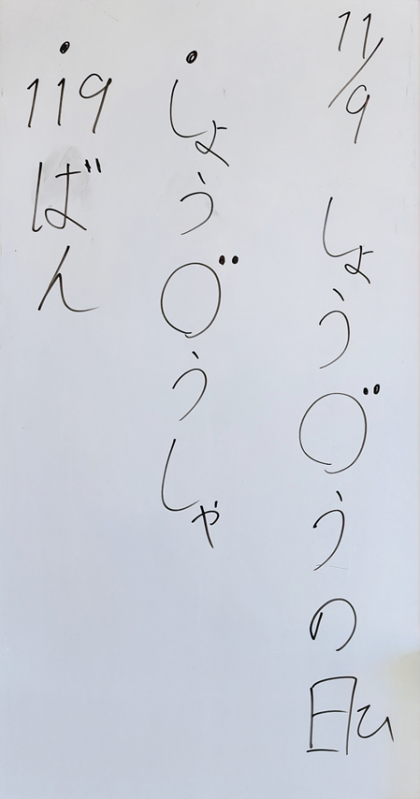 11/9 しょう〇゛うの日ひ
・しょう〇゛うしゃ
・119ばん